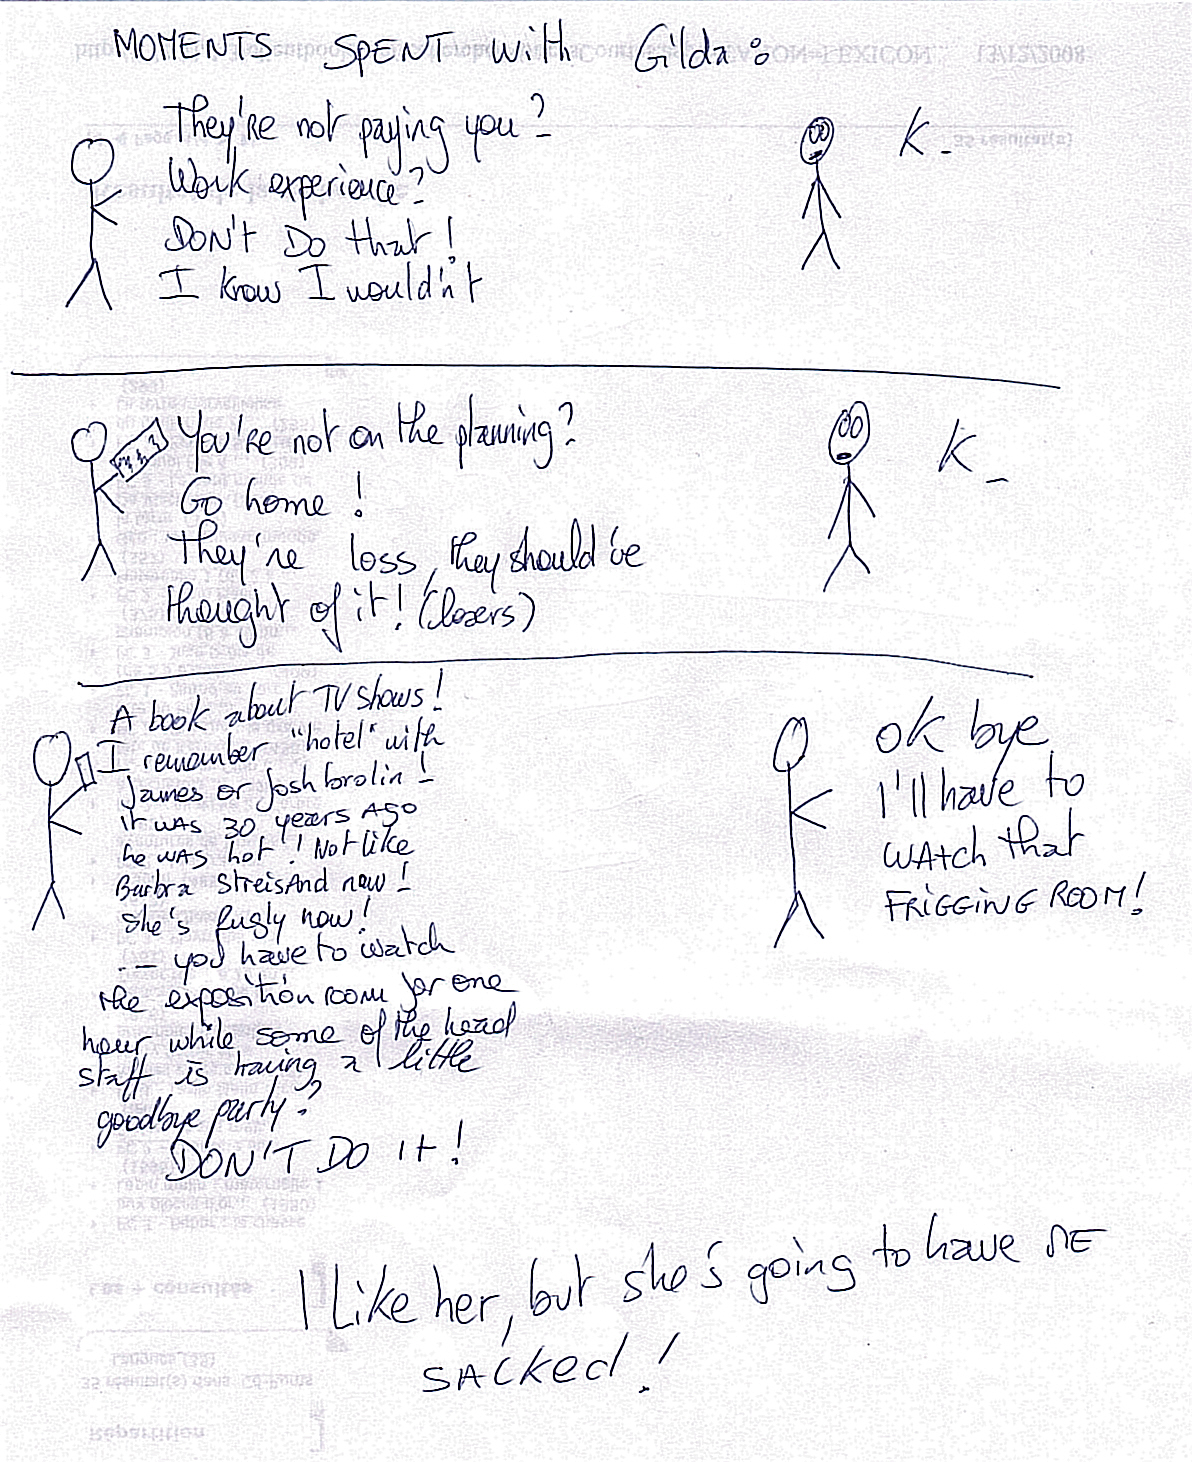 MOMENTS SPENT with Gilda:
They're not paying you?
Work experience?
DON'T DO that!
I know I wouldn't
K_
You're not on the planning?
Go home!
They're loss, they should've
thought of it! (losers)
K_
A book about TV shows!
I remember "hotel" with
James or Josh brolin!
it WAS 30 years AGO
he WAS hot! Not like
Barbra StreisAnd now!
she's fugly now!
... you have to watch
the exposition room for one
hour while some of the head
staff is having a little
goodbye party?
DON'T DO it!
ok bye
I'll have to
WAtch that
FRIGGING ROOM!
I Like her, but she's going to have ME
SACKED!
13/12/2008
35 résultat(s)
35 résultat(s) dans
Répartition